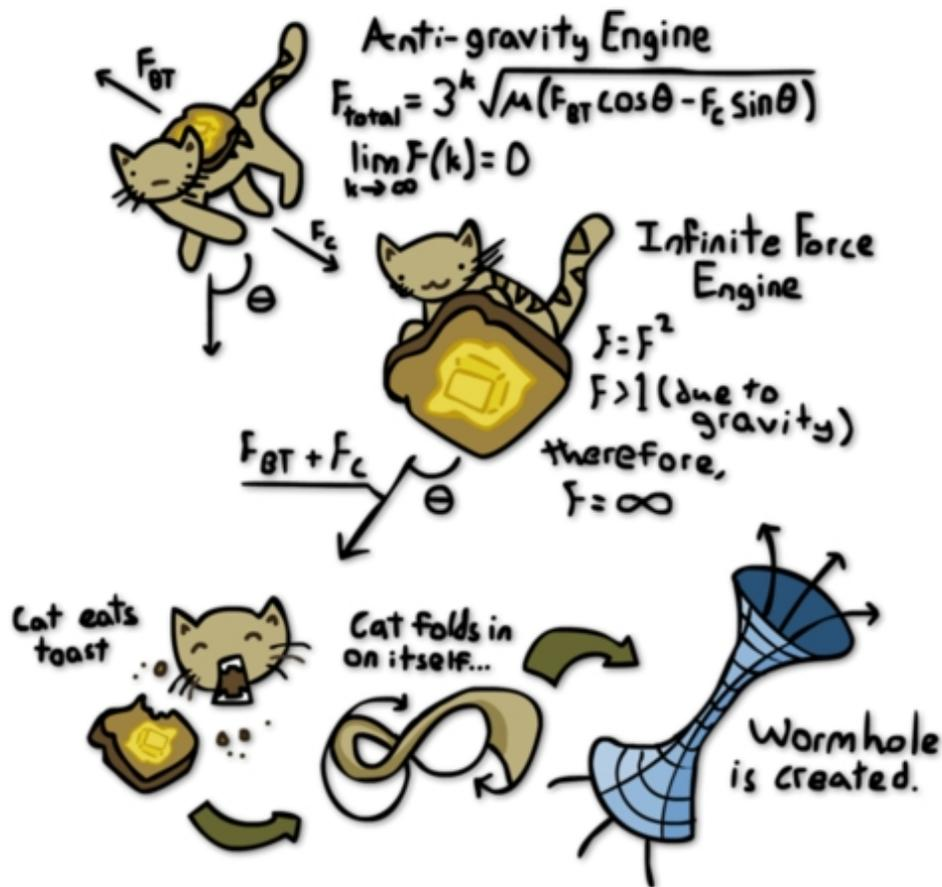 Anti-gravity Engine
F_BT
F_total = 3^k √(μ(F_BT cos θ - F_c sin θ))
lim F(k) = 0
k→∞
F_c
θ
Infinite Force
Engine
F = F²
F > 1 (due to
gravity)
therefore,
F = ∞
F_BT + F_c
θ
Cat eats
toast
Cat folds in
on itself...
Wormhole
is created.